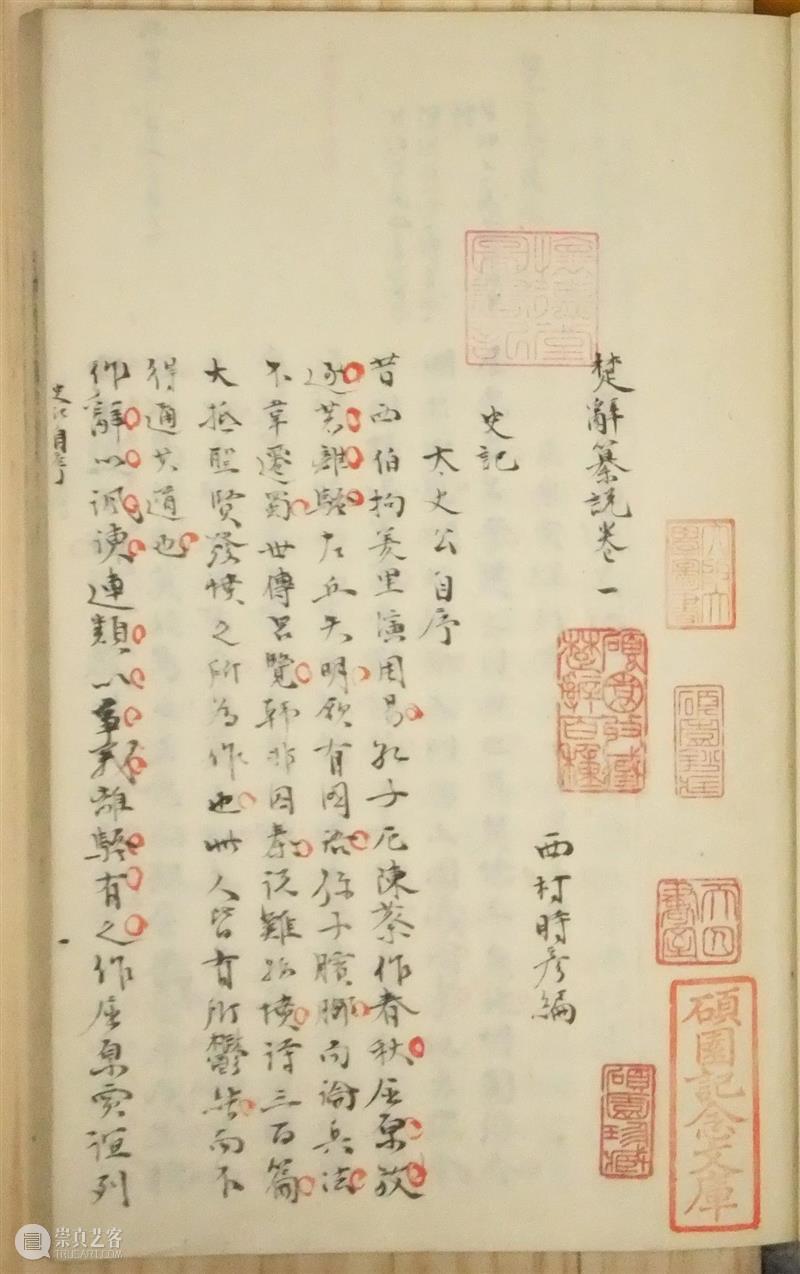 碩園記念文庫
天囚書室
碩園珍藏
碩園收藏楚辭百種
楚辭纂說卷一
西村時彥編
史記
太史公自序
昔西伯拘羑里演周易孔子厄陳蔡作春秋屈原放
逐著離騷左丘失明厥有國語孫子臏腳而論兵法
不韋遷蜀世傳呂覽韓非囚秦說難孤憤詩三百篇
大抵聖賢發憤之所為作也此人皆有所鬱結而不
得通其道也
作辭以諷諫連類以爭義離騷有之作屈原賈誼列
史記自序
崇真艺客
TRUEART.COM